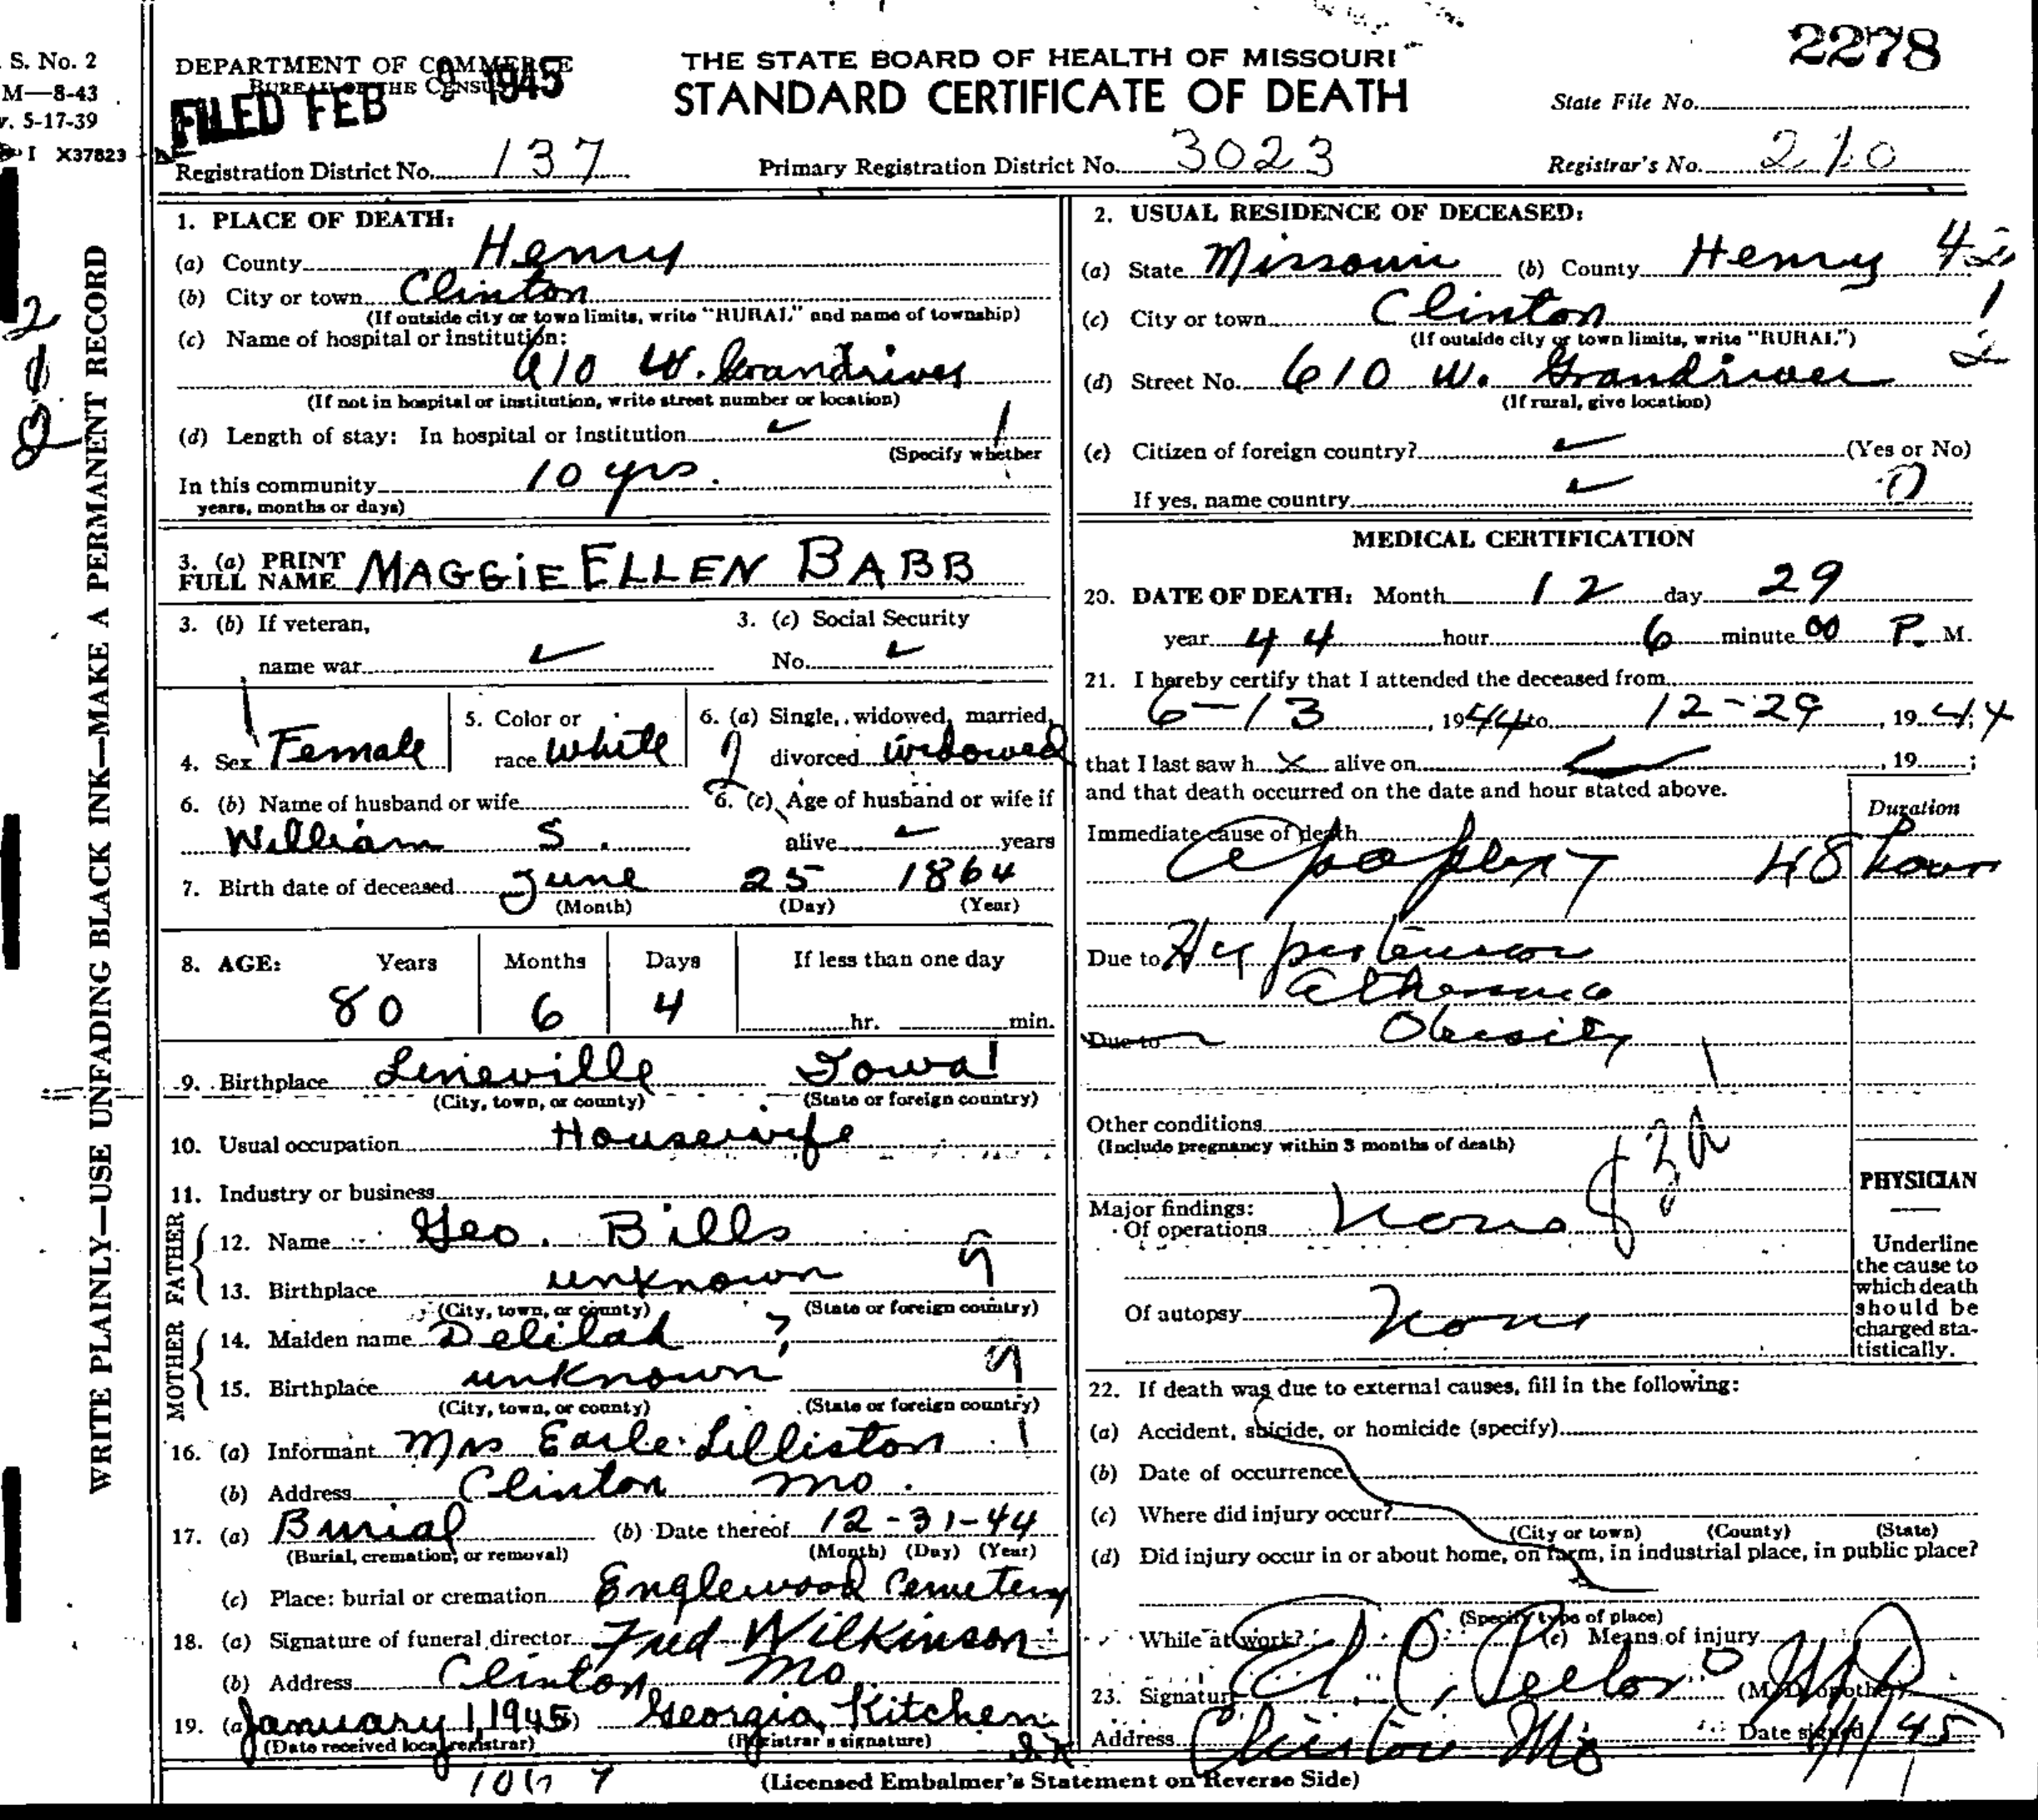 2278
S. No. 2
M—8-43
v. 5-17-39
I X37823
DEPARTMENT OF COMMERCE
BUREAU OF THE CENSUS
FILED FEB 9 1945
THE STATE BOARD OF HEALTH OF MISSOURI
STANDARD CERTIFICATE OF DEATH
State File No.
Registration District No. 137
Primary Registration District No. 3023
Registrar's No. 210
WRITE PLAINLY—USE UNFADING BLACK INK—MAKE A PERMANENT RECORD
1. PLACE OF DEATH:
(a) County Henry
(b) City or town Clinton
(If outside city or town limits, write "RURAL" and name of township)
(c) Name of hospital or institution:
610 W. Grandriver
(If not in hospital or institution, write street number or location)
(d) Length of stay: In hospital or institution
(Specify whether
In this community 10 yrs.
years, months or days)
2. USUAL RESIDENCE OF DECEASED:
(a) State Missouri (b) County Henry 42
(c) City or town Clinton 1
(If outside city or town limits, write "RURAL") 2
(d) Street No. 610 W. Grandriver
(If rural, give location)
(e) Citizen of foreign country? (Yes or No)
If yes, name country 0
3. (a) PRINT FULL NAME MAGGIE ELLEN BABB
3. (b) If veteran,
name war
3. (c) Social Security
No.
4. Sex Female
5. Color or race White
6. (a) Single, widowed, married, divorced Widowed
6. (b) Name of husband or wife
William S.
6. (c) Age of husband or wife if
alive years
7. Birth date of deceased June 25 1864
(Month) (Day) (Year)
8. AGE: Years Months Days If less than one day
80 6 4 hr. min.
9. Birthplace Lineville Iowa
(City, town, or county) (State or foreign country)
10. Usual occupation Housewife
11. Industry or business
FATHER
12. Name Geo. Bills
13. Birthplace unknown 9
(City, town, or county) (State or foreign country)
MOTHER
14. Maiden name Delilah ?
15. Birthplace unknown 9
(City, town, or county) (State or foreign country)
16. (a) Informant Mrs Earle Lilliston
(b) Address Clinton Mo.
17. (a) Burial (b) Date thereof 12-31-44
(Burial, cremation, or removal) (Month) (Day) (Year)
(c) Place: burial or cremation Englewood Cemetery
18. (a) Signature of funeral director Fred Wilkinson
(b) Address Clinton Mo
19. (a) January 1, 1945 (b) Georgia Kitchen
(Date received local registrar) (Registrar's signature)
MEDICAL CERTIFICATION
20. DATE OF DEATH: Month 12 day 29
year 44 hour 6 minute 00 P. M.
21. I hereby certify that I attended the deceased from
6-13, 1944 to 12-29, 1944;
that I last saw h x alive on , 19 ;
and that death occurred on the date and hour stated above.
Duration
Immediate cause of death
Apoplexy 48 hour
Due to Hypertension
Due to Obesity
Other conditions
(Include pregnancy within 3 months of death)
83a
PHYSICIAN
Underline the cause to which death should be charged statistically.
Major findings:
Of operations None
Of autopsy None
22. If death was due to external causes, fill in the following:
(a) Accident, suicide, or homicide (specify)
(b) Date of occurrence
(c) Where did injury occur?
(City or town) (County) (State)
(d) Did injury occur in or about home, on farm, in industrial place, in public place?
(Specify type of place)
While at work? (e) Means of injury
23. Signature MD (M.D. or other)
Address Clinton Mo Date signed 1/1/45
(Licensed Embalmer's Statement on Reverse Side)